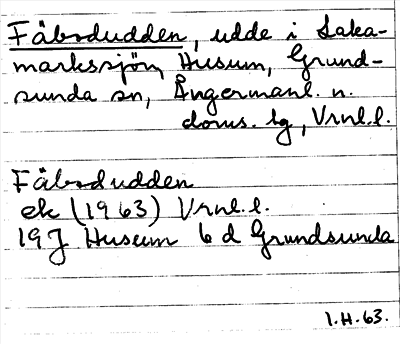 Fäbodudden, udde i Saka-
marksjön, Husum, Grund-
sunda sn, Ångermanl. n.
doms. lg, Vrnl.l.
Fäbodudden
ek (1963) Vrnl.l.
19J Husum 6 d Grundsunda
1.H.63.